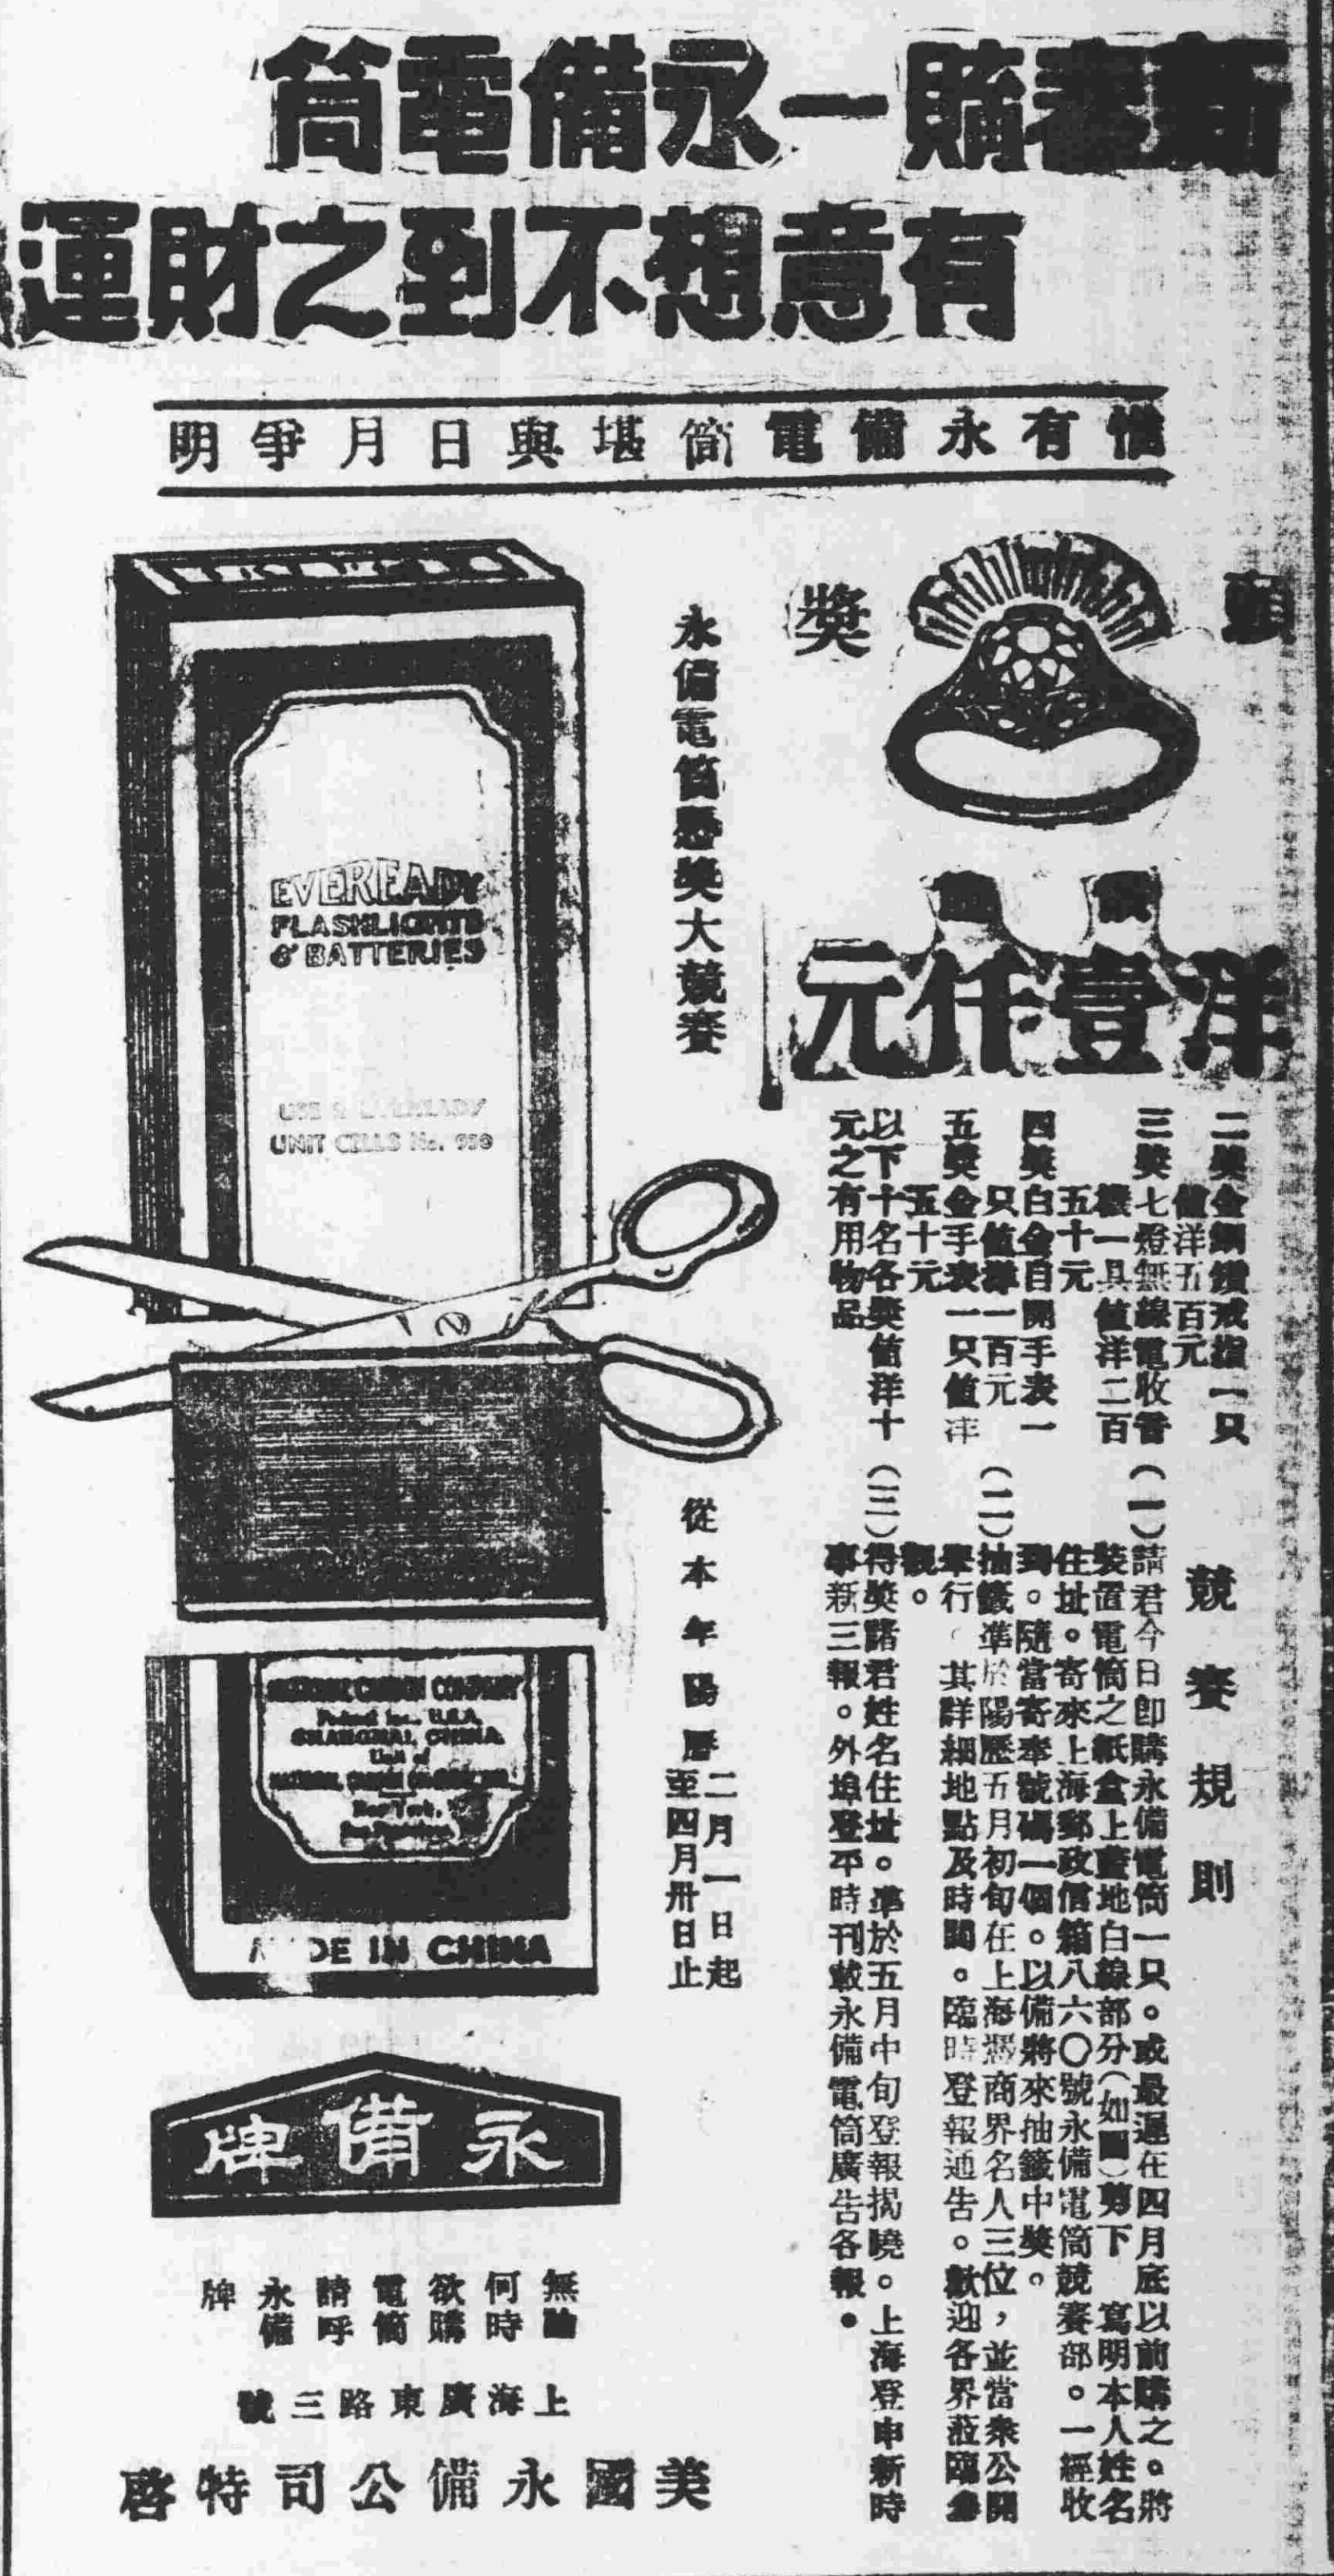 新春購一永備電筒
有意想不到之財運
惟有永備電筒堪與日月爭明
頭獎
價值
洋壹仟元
二獎金鋼鑽戒指一只
值洋五百元
三獎七燈無線電收音
機一具值洋二百
五十元
四獎白金自開手表一
只值洋一百元
五獎金手表一只值洋
五十元
以下十名各獎值洋十
元之有用物品
競賽規則
(一)請君今日即購永備電筒一只。或最遲在四月底以前購之。將
裝置電筒之紙盒上藍地白線部分(如圖)剪下 寫明本人姓名
住址。寄來上海郵政信箱八六〇號永備電筒競賽部。一經收
到。隨當寄奉號碼一個。以備將來抽籤中獎。
(二)抽籤準於陽歷五月初旬在上海請商界名人三位,並當眾公開
舉行。其詳細地點及時間。臨時登報通告。歡迎各界蒞臨參
觀。
(三)得獎諸君姓名住址。準於五月中旬登報揭曉。上海登申新時
事新三報。外埠登平時刊載永備電筒廣告各報。
永備電筒懸獎大競賽
從本年陽曆
二月一日起
至四月卅日止
EVEREADY
FLASHLIGHTS
& BATTERIES
USE 2 EVEREADY
UNIT CELLS No. 950
NATIONAL CARBON COMPANY
SHANGHAI, CHINA
Unit of
New York,
MADE IN CHINA
永備牌
無論何時欲購電筒請呼永備牌
上海廣東路三號
美國永備公司特啓